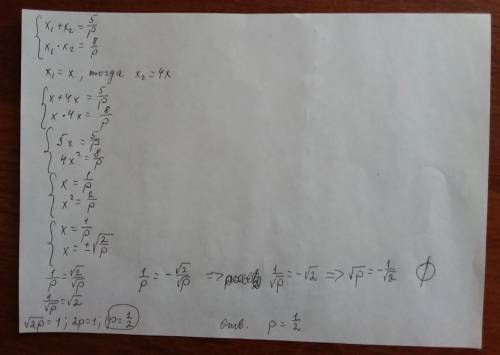 x₁+x₂ = 5/p
x₁·x₂ = 8/p
x₁ = x, тогда x₂ = 4x
x+4x = 5/p
x·4x = 8/p
5x = 5/p
4x² = 8/p
x = 1/p
x² = 2/p
x = 1/p
x = ±√(2/p)
1/p = √2/√p    1/p = -√2/√p => 1/√p = -√2 => √p = -1/√2 ∅
1/√p = √2
√2p = 1; 2p = 1; p = 1/2    отв. p = 1/2